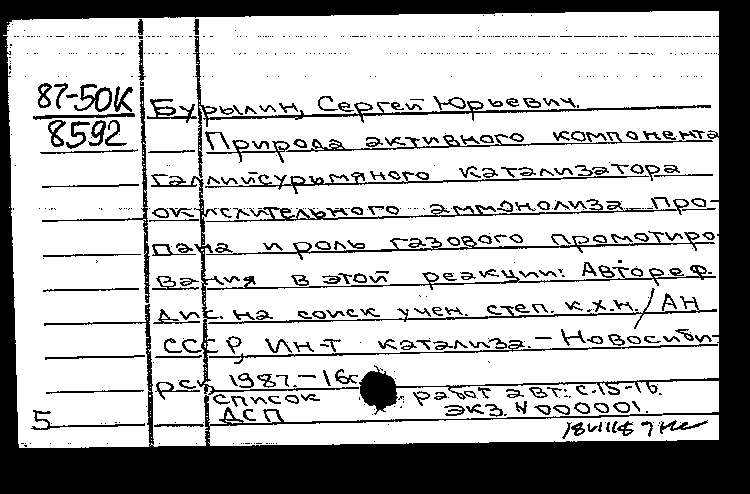 87-50К
8592
Бурылин, Сергей Юрьевич.
Природа активного компонента
галлийсурьмяного катализатора
окислительного аммонолиза про-
пана и роль газового промотиро-
вания в этой реакции: Автореф.
дис. на соиск учен. степ. к.х.н. / АН
СССР, Ин-т катализа. - Новосиби-
рск, 1987. - 16с.
список работ авт: с.15-16.
ДСП экз. N 000001.
5